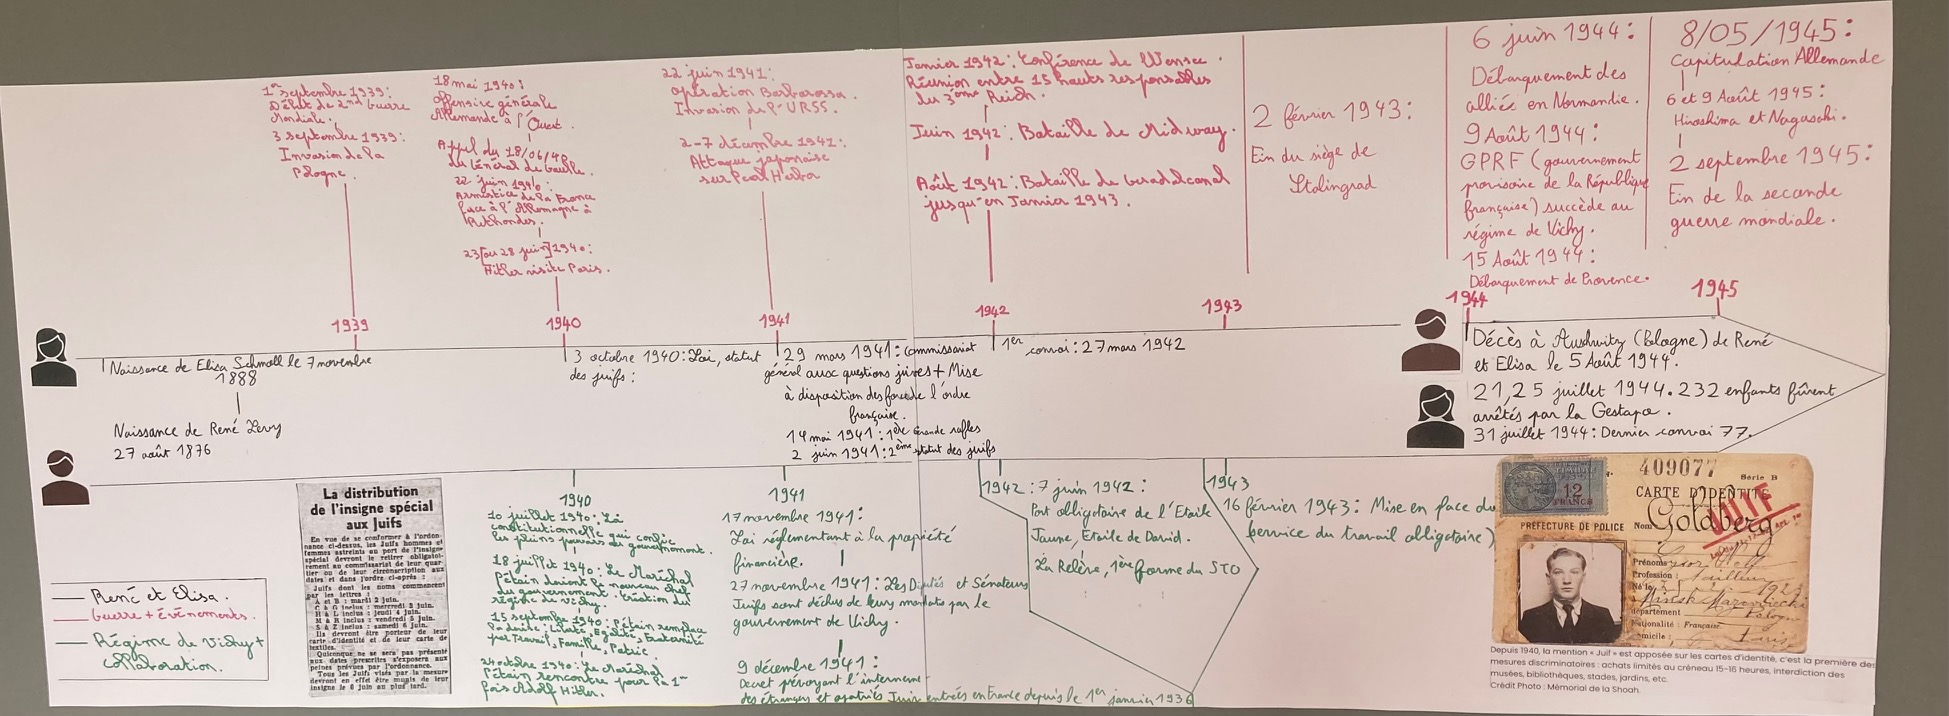 1er septembre 1939:
Début de 2nd Guerre
Mondiale.
3 septembre 1939:
Invasion de la
Pologne.
1939
18 mai 1940:
Offensive générale
Allemande à l'Ouest.
Appel du 18/06/40
du Général de Gaulle.
22 juin 1940:
Armistice de la France
face à l'Allemagne à
Rethondes.
23[ou 28 juin]1940:
Hitler visite Paris.
1940
22 juin 1941:
opération Barbarossa.
Invasion de l'URSS.
2-7 décembre 1941:
Attaque japonaise
sur Pearl Harbor
1941
Janvier 1942: Conférence de Wensee.
Réunion entre 15 hauts responsables
du 3ème Reich.
Juin 1942: Bataille de Midway.
Août 1942: Bataille de Guadalcanal
jusqu'en Janvier 1943.
1942
2 février 1943:
Fin du siège de
Stalingrad
1943
6 juin 1944:
Débarquement des
alliés en Normandie.
9 Août 1944:
GPRF (gouvernement
provisoire de la République
française) succède au
régime de Vichy.
15 Août 1944:
Débarquement de Provence.
1944
8/05/1945:
Capitulation Allemande
6 et 9 Août 1945:
Hiroshima et Nagasaki.
2 septembre 1945:
Fin de la seconde
guerre mondiale.
1945
Naissance de Elisa Schmoll le 7 novembre
1888
Naissance de René Levy
27 août 1876
3 octobre 1940: Loi, statut
des juifs:
29 mars 1941: Commissariat
général aux questions juives + Mise
à disposition des forces de l'ordre
française.
14 mai 1941: 1ère Grande rafles
2 juin 1941: 2ème statut des juifs
1er convoi: 27 mars 1942
Décès à Auschwitz (Pologne) de René
et Elisa le 5 Août 1944.
21,25 juillet 1944. 232 enfants fûrent
arrêtés par la Gestapo.
31 juillet 1944: Dernier convoi 77.
René et Elisa.
Guerre + événements.
Régime de Vichy +
collaboration.
La distribution
de l'insigne spécial
aux Juifs
En vue de se conformer à l'ordon-
nance ci-dessus, les Juifs hommes et
femmes astreints au port de l'insigne
spécial devront le retirer obligatoi-
rement au commissariat de leur quar-
tier ou de leur circonscription aux
dates et dans l'ordre ci-après:
Juifs dont les noms commencent
par les lettres:
A et B: mardi 2 juin.
C à G inclus: mercredi 3 juin.
H à L inclus: jeudi 4 juin.
M à R inclus: vendredi 5 juin.
S à Z inclus: samedi 6 juin.
Ils devront être porteur de leur
carte d'identité et de leur carte de
textiles.
Quiconque ne se sera pas présenté
aux dates prescrites s'exposera aux
peines prévues par l'ordonnance.
Tous les Juifs visés par la mesure
devront en effet être munis de leur
insigne le 6 juin au plus tard.
1940
10 juillet 1940: Loi
constitutionnelle qui confie
les pleins pouvoirs du gouvernement.
18 juillet 1940: Le Maréchal
Pétain devient le nouveau chef
du gouvernement. Création du
régime de Vichy.
15 septembre 1940: Pétain remplace
la devise: Liberté, Egalité, Fraternité
par Travail, Famille, Patrie.
24 octobre 1940: Le Maréchal
Pétain rencontre pour la 1er
fois Adolf Hitler.
1941
17 novembre 1941:
Loi réglementant à la propriété
financière.
27 novembre 1941: Les Députés et Sénateurs
Juifs sont déchus de leurs mandats par le
gouvernement de Vichy.
9 décembre 1941:
Decret prévoyant l'internement
des étrangers et apatrides Juifs entrés en France depuis le 1er janvier 1936
1942: 7 juin 1942:
Port obligatoire de l'Etoile
Jaune, Etoile de David.
La Relève, 1ère forme du STO
1943
16 février 1943: Mise en place du
service du travail obligatoire)
409077
Série B
12
FRANCS
CARTE D'IDENTITÉ
PRÉFECTURE DE POLICE
Nom Goldberg
JUIF
Prénoms
Profession: Tailleur
Né le
département
Pologne
Nationalité: Française
Domicile: Paris
Depuis 1940, la mention « Juif » est apposée sur les cartes d'identité, c'est la première des
mesures discriminatoires : achats limités au créneau 15-16 heures, interdiction des
musées, bibliothèques, stades, jardins, etc.
Crédit Photo : Mémorial de la Shoah.